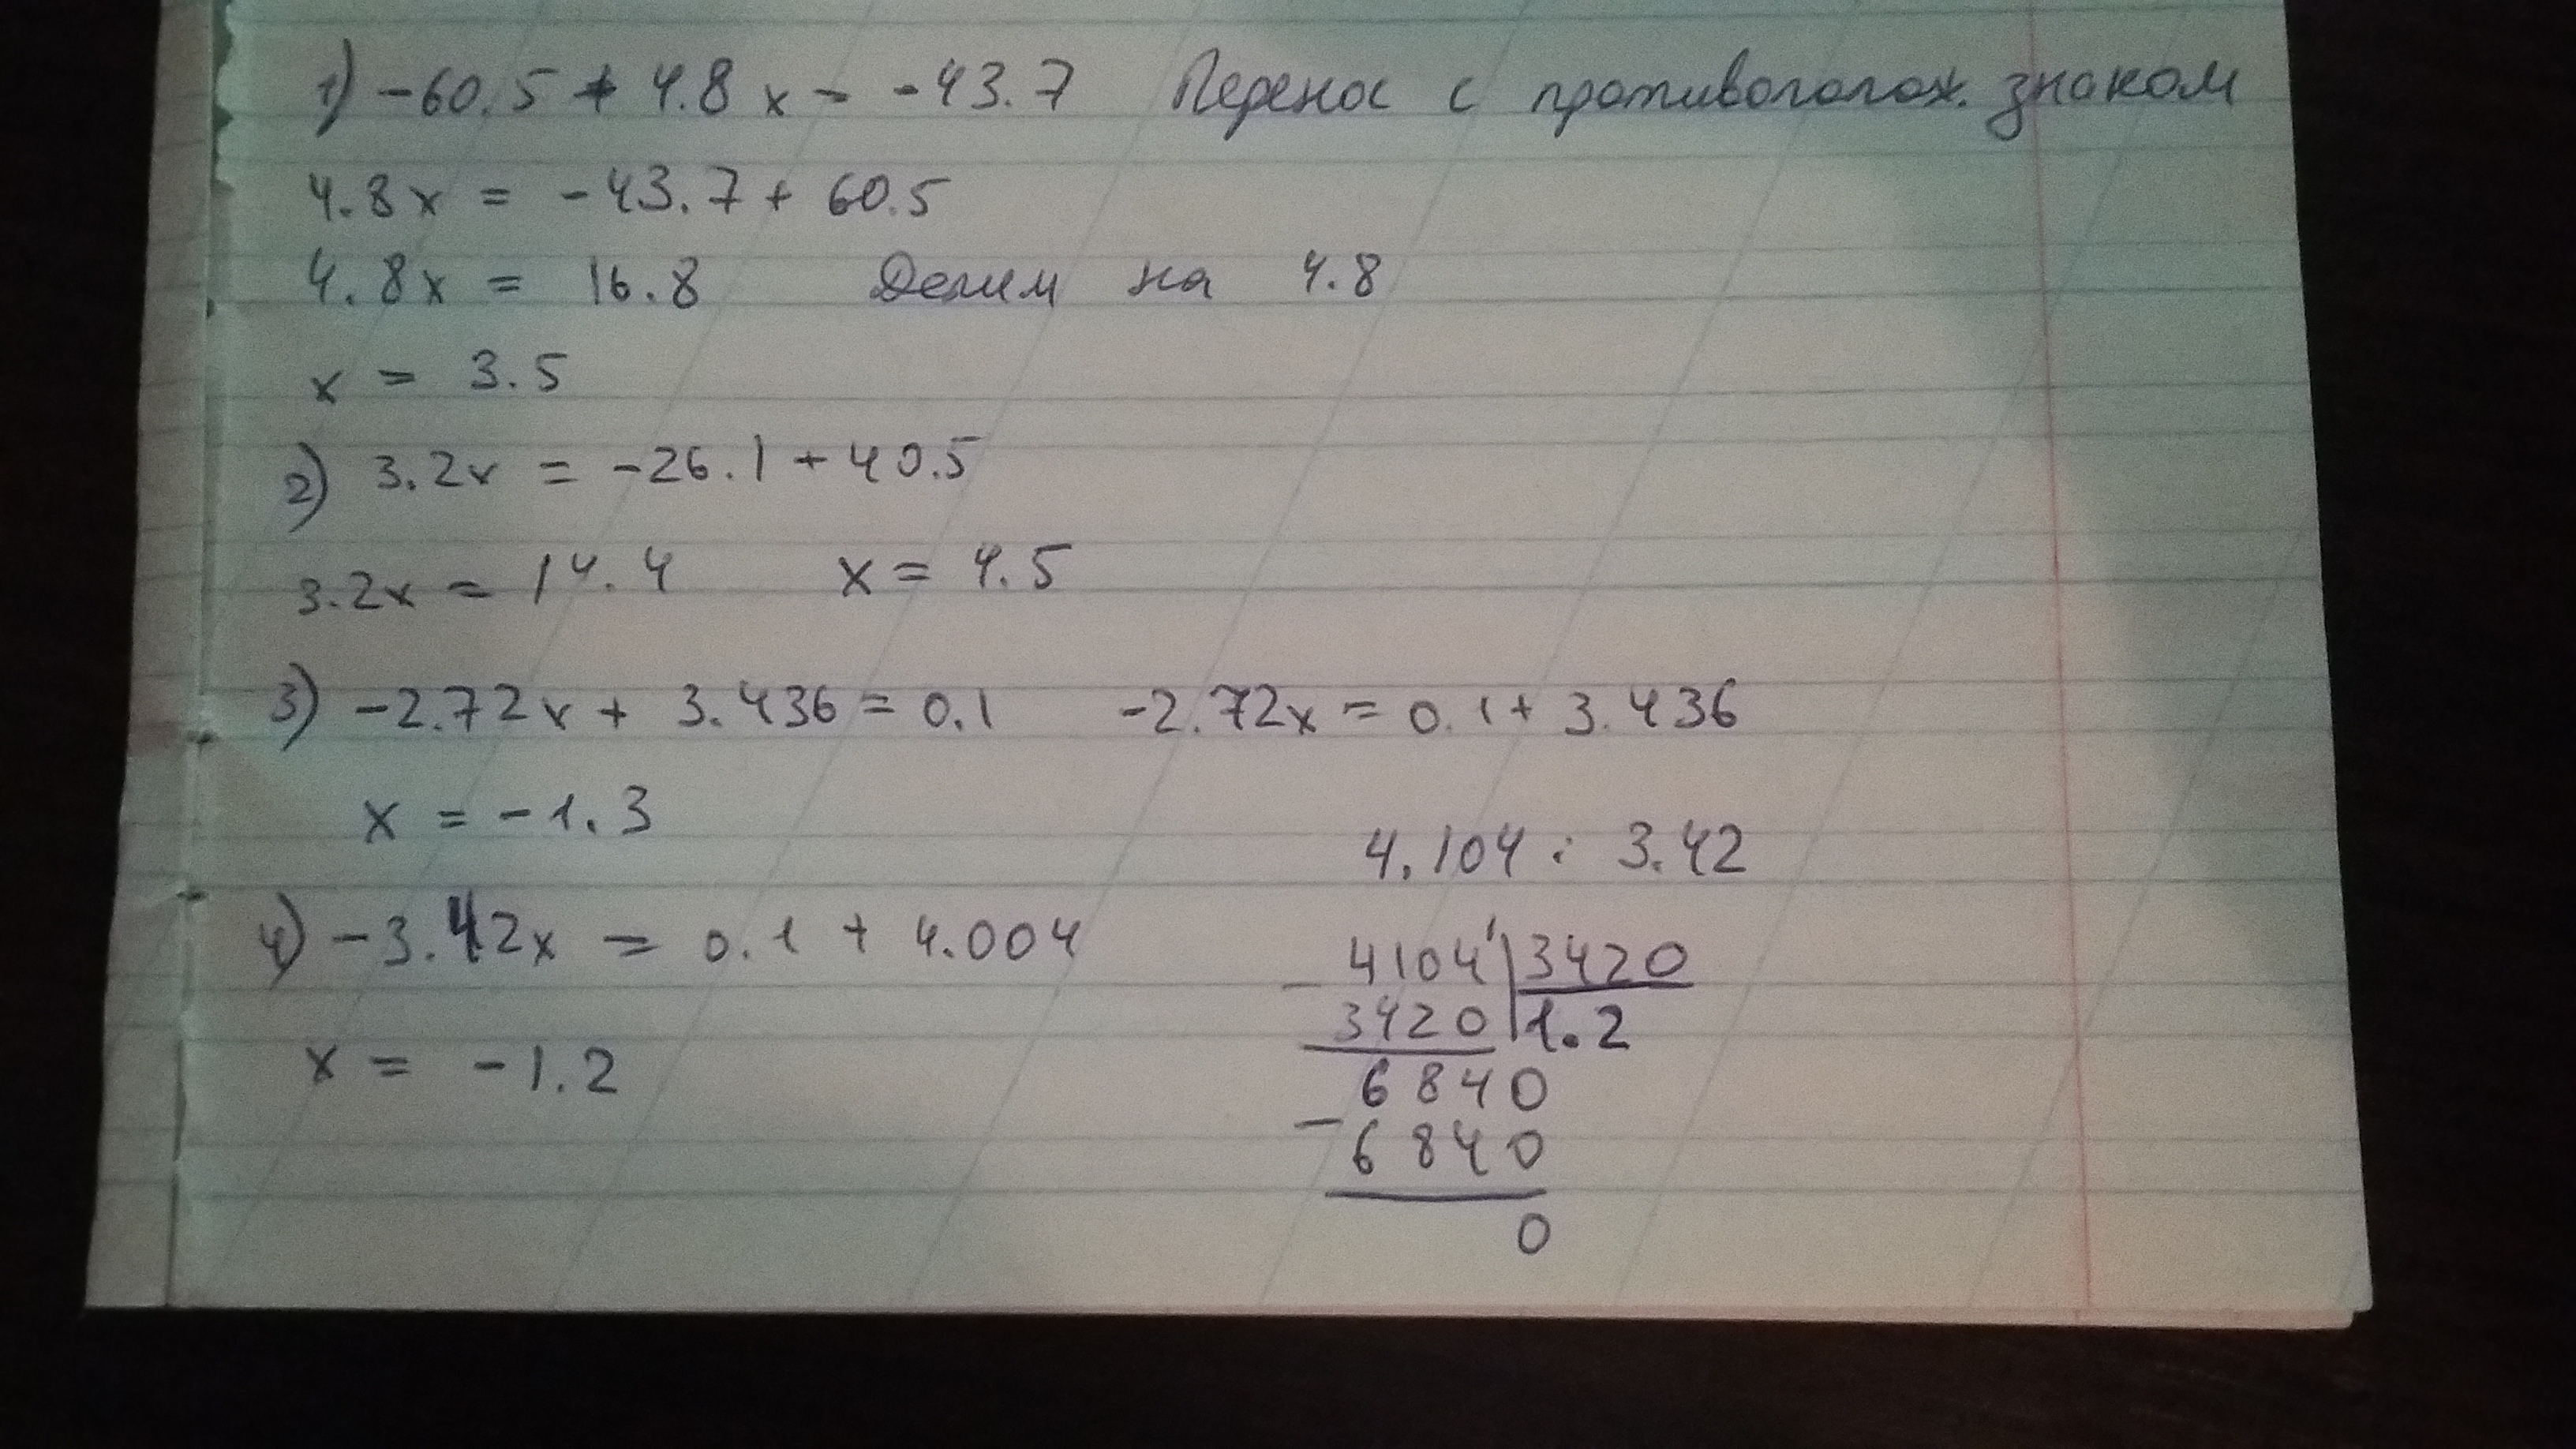 1) -60.5 + 4.8x = -43.7 Перенос с противополож. знаком
4.8x = -43.7 + 60.5
4.8x = 16.8 Делим на 4.8
x = 3.5
2) 3.2x = -26.1 + 40.5
3.2x = 14.4 x = 4.5
3) -2.72x + 3.436 = 0.1 -2.72x = 0.1 + 3.436
x = -1.3
4.104 : 3.42
4) -3.42x = 0.1 + 4.004
- 4104' 3420
3420 1.2
6840
- 6840
0
x = -1.2